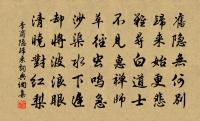 舊隱無何別
歸來始更悲
難尋白道士
不見惠禪師
草徑蟲鳴急
沙渠水下遲
却將波浪眼
清曉對紅梨
李商隱歸來詞典網集